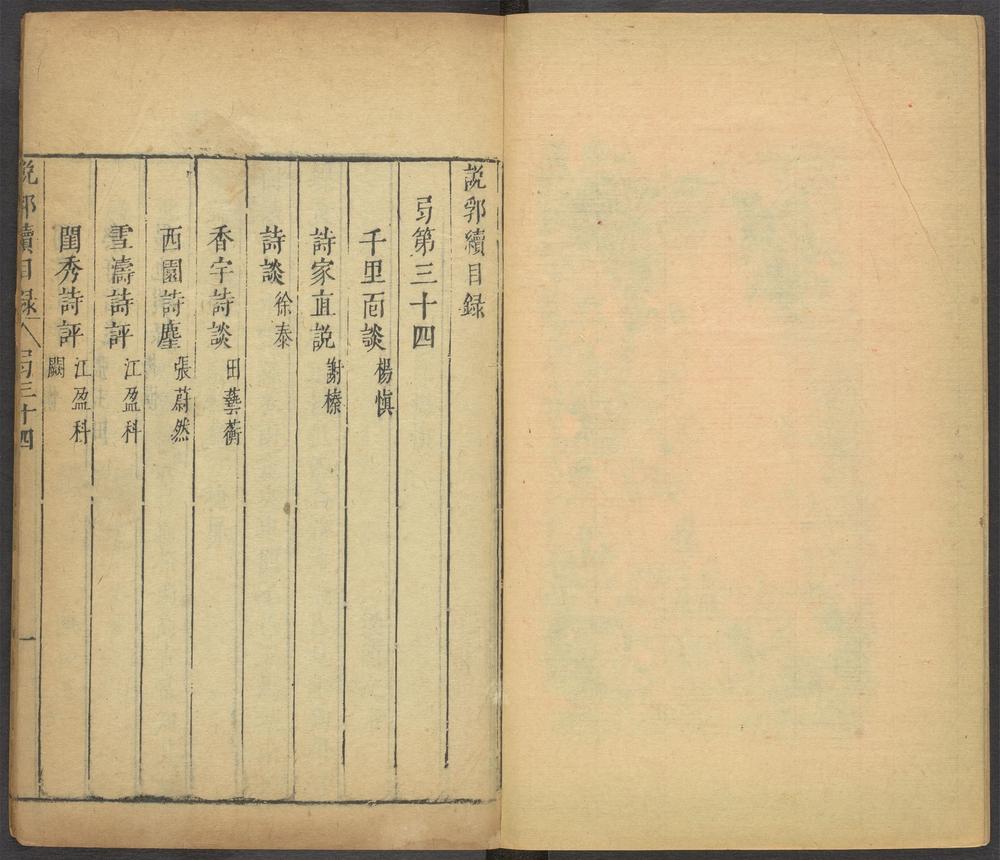 説郛續目録
弓第三十四
千里面談 楊慎
詩家直説 謝榛
詩談 徐泰
香宇詩談 田藝蘅
西園詩麈 張蔚然
雪濤詩評 江盈科
閨秀詩評 江盈科 闕
説郛續目録 弓三十四 一